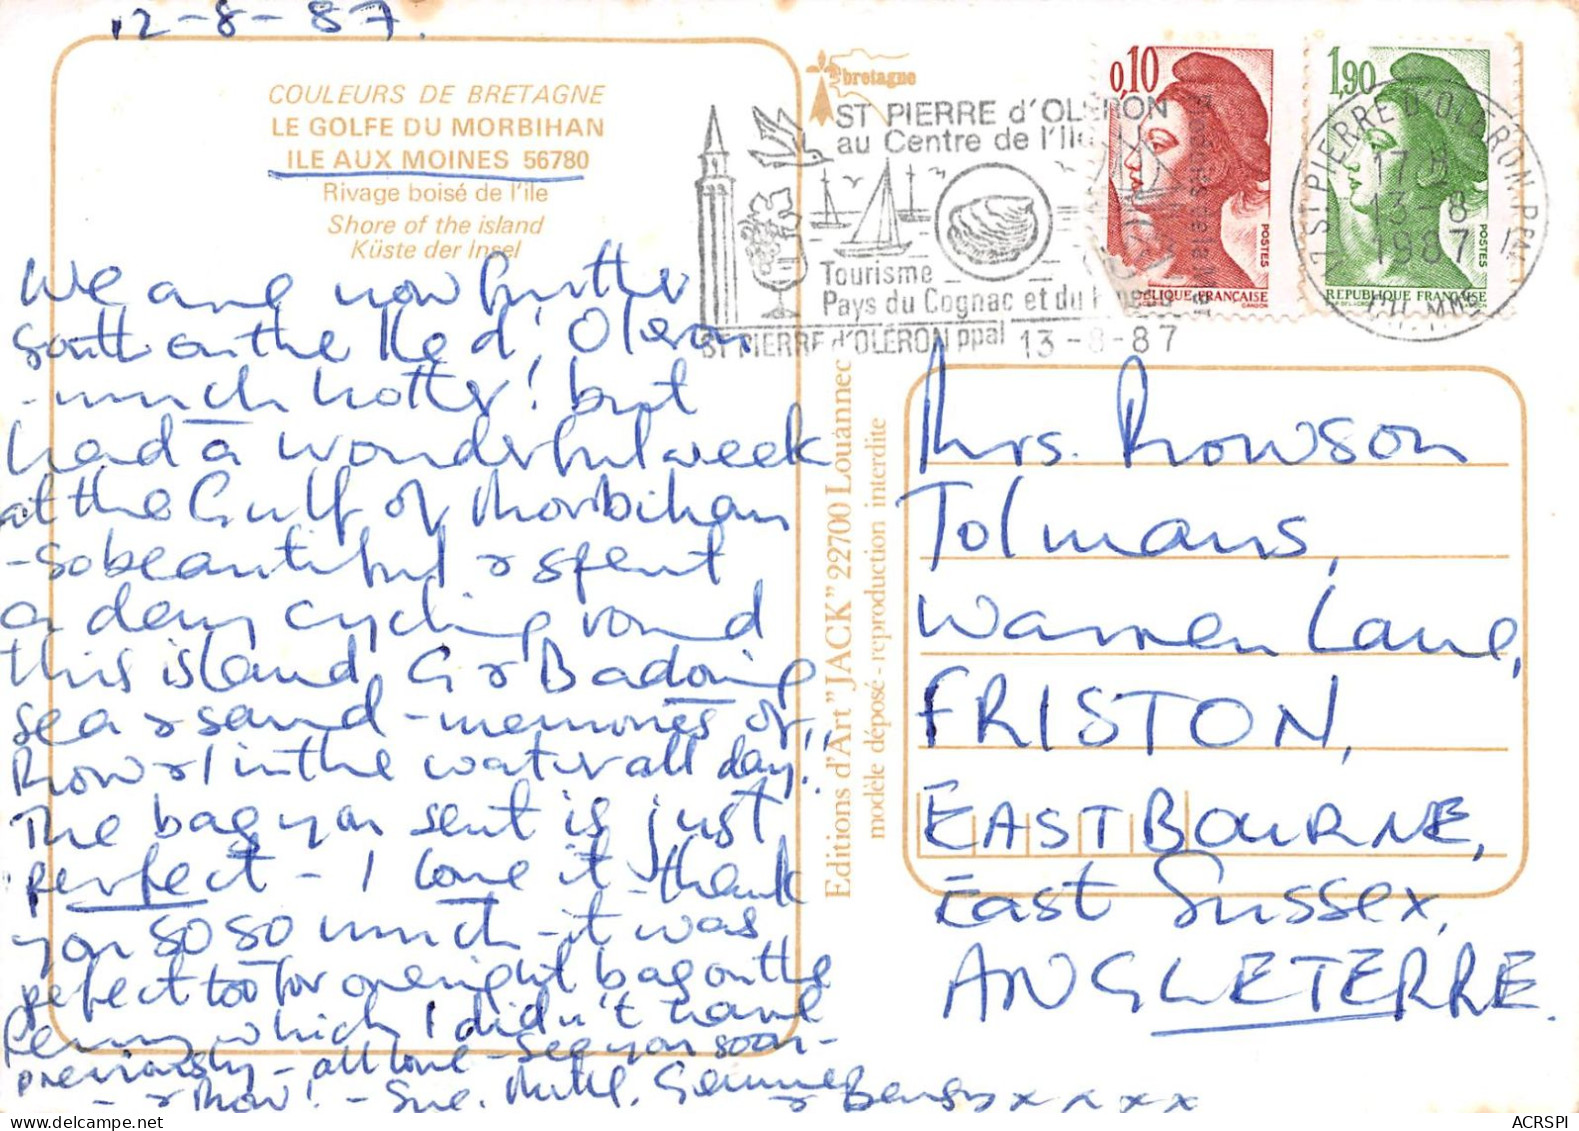 12-8-87.
COULEURS DE BRETAGNE
LE GOLFE DU MORBIHAN
ILE AUX MOINES 56780
Rivage boisé de l'île
Shore of the island
Küste der Insel
We are now further
south on the Ile d'Oleron
- much hotter! but
had a wonderful week
at the Gulf of Morbihan
- so beautiful & spent
a day cycling round
this island. G & B adoring
sea & sand - memories of
Row & I in the water all day!!
The bag you sent is just
perfect - I love it - thank
you so so much - it was
perfect too for overnight bag on the
Ferry which I didn't have
previously - all love - see you soon -
- & Row! - Sue, Mike, Gemma
& Ben xxxxx
Editions d'Art "JACK" 22700 Louannec
modèle déposé - reproduction interdite
bretagne
ST PIERRE d'OLERON
au Centre de l'Ile
Tourisme
Pays du Cognac et du
ST PIERRE d'OLÉRON ppal 13-8-87
0,10
POSTES
REPUBLIQUE FRANÇAISE
1,90
POSTES
REPUBLIQUE FRANÇAISE
17 ST PIERRE D'OLERON PPAL
17 H
13-8
1987
CHte MME
Mrs. Rowson
Tolmans,
Warren Lane,
FRISTON,
EASTBOURNE,
East Sussex,
ANGLETERRE.
ACRSPI